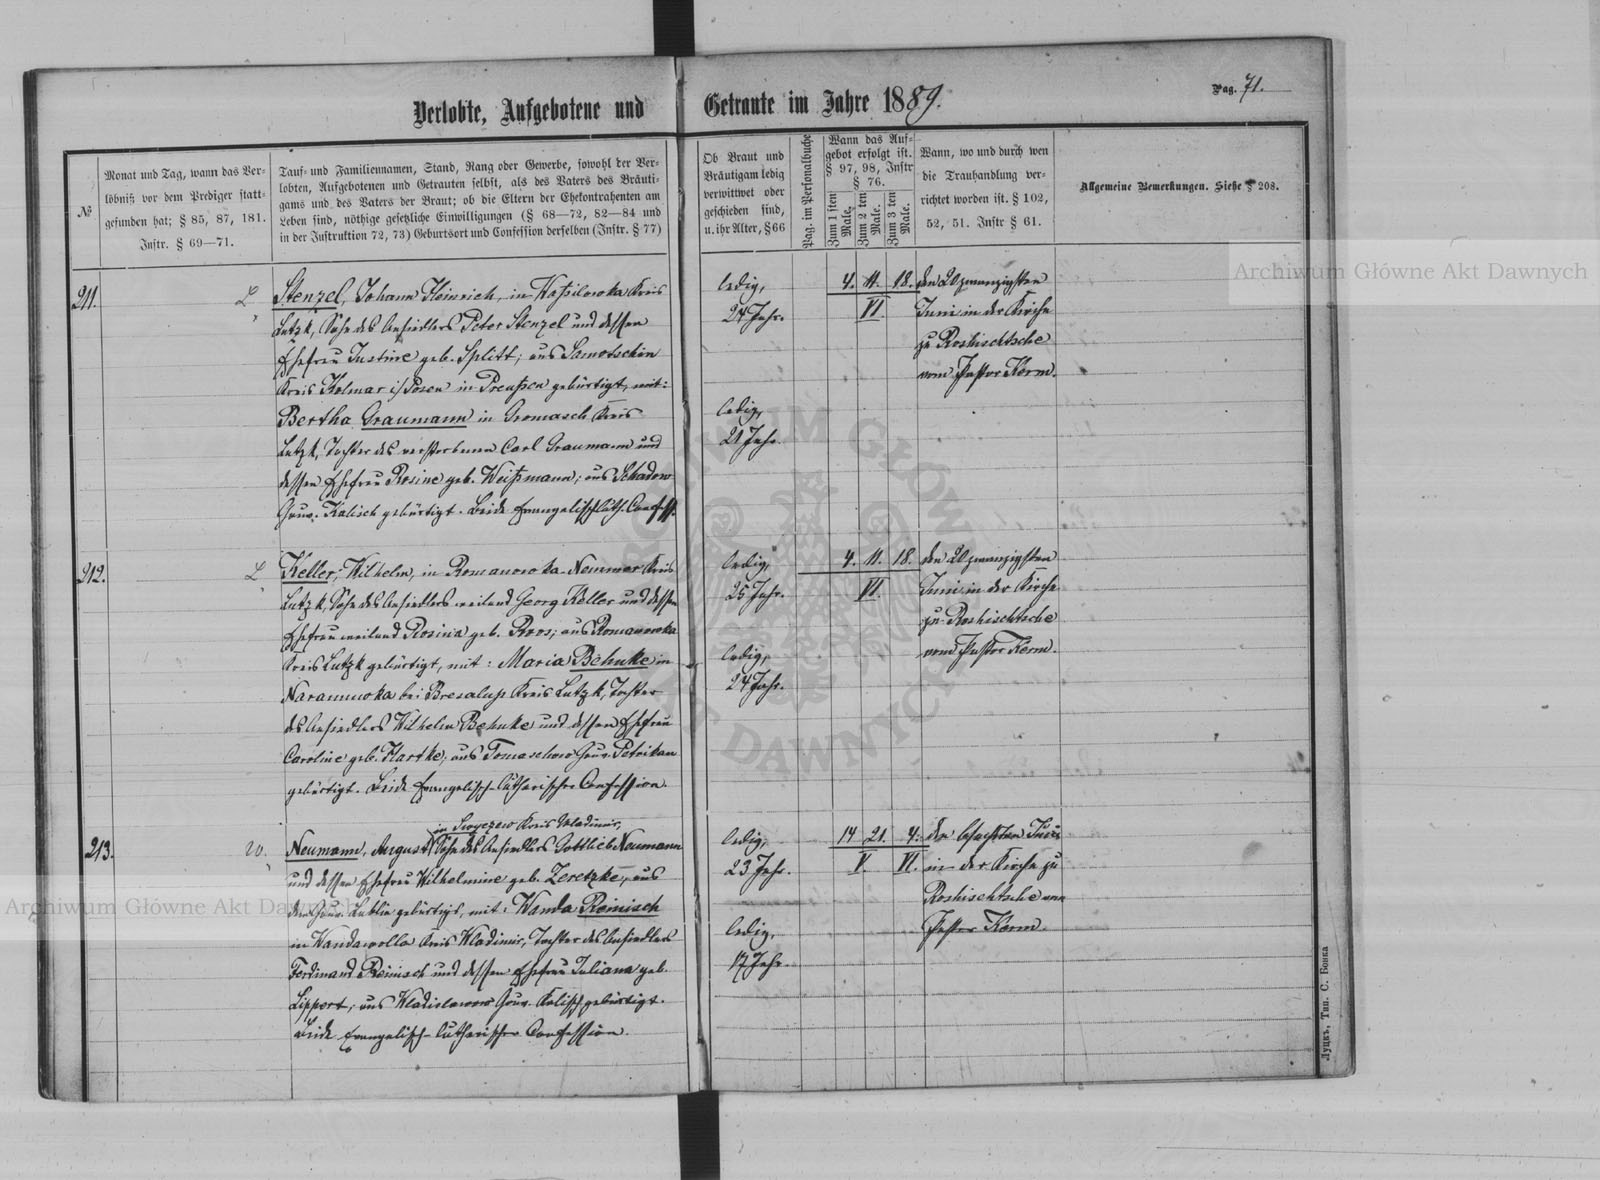 Verlobte, Aufgebotene und Getraute im Jahre 1889.
Pag. 71.
№
Monat und Tag, wann das Ver-
löbniß vor dem Prediger statt-
gefunden hat; § 85, 87, 181.
Instr. § 69—71.
Tauf- und Familiennamen, Stand, Rang oder Gewerbe, sowohl der Ver-
lobten, Aufgebotenen und Getrauten selbst, als des Vaters des Bräuti-
gams und des Vaters der Braut; ob die Eltern der Ehekontrahenten am
Leben sind, nöthige gesetzliche Einwilligungen (§ 68—72, 82—84 und
in der Instruktion 72, 73) Geburtsort und Confession derselben (Instr. § 77)
Ob Braut und
Bräutigam ledig
verwittwet oder
geschieden sind,
u. ihr Alter, § 66
Pag. im Personalbuche
Wann das Auf-
gebot erfolgt ist.
§ 97, 98, Instr
§ 76.
Zum 1 sten Male.
Zum 2 ten Male.
Zum 3 ten Male.
Wann, wo und durch wen
die Trauhandlung ver-
richtet worden ist. § 102,
52, 51. Instr § 61.
Allgemeine Bemerkungen. Siehe § 208.
211.
L
Stenzel, Johann Heinrich, in Waßilowka Kreis
Lutzk, Sohn des Ansiedlers Peter Stenzel und dessen
Ehefrau Justine geb. Splitt; aus Samotschin
Kreis Kolmar i/Posen in Preußen gebürtigt, mit:
Bertha Graumann in Gromasch Kreis
Lutzk, Tochter des verstorbenen Carl Graumann und
dessen Ehefrau Rosine geb. Weißmann; aus Schadow
Gouv. Kalisch gebürtigt. Beide Evangelisch luth. Confess.
ledig,
24 Jahr.
ledig,
21 Jahr.
4. 11. 18.
VI.
den 20 zwanzigsten
Juni in der Kirche
zu Roshischtsche
vom Pastor Kerm.
212.
L
Keller, Wilhelm, in Romanowka-Nemmer Kreis
Lutzk, Sohn des Ansiedlers weiland Georg Keller und dessen
Ehefrau weiland Rosina geb. Roos; aus Romanowka
Kreis Lutzk gebürtigt, mit: Maria Behnke in
bei Kreis Lutzk, Tochter
des Ansiedlers Wilhelm Behnke und dessen Ehefrau
Caroline geb. Hartke; aus Tomaschow Gouv. Petrikau
gebürtigt. Beide Evangelisch-lutherischer Confession.
ledig,
25 Jahr.
ledig,
24 Jahr.
4. 11. 18.
VI.
den 20 zwanzigsten
Juni in der Kirche
zu Roshischtsche
vom Pastor Kerm.
213.
W.
in Kreis Wladimir,
Neumann, August, Sohn des Ansiedlers Gottlieb Neumann
und dessen Ehefrau Wilhelmine geb. Zeretzke, aus
dem Gouv. Lublin gebürtigt, mit: Wanda Reinisch
in Wandawolla Kreis Wladimir, Tochter des Ansiedlers
Ferdinand Reinisch und dessen Ehefrau Juliana geb.
Lippert; aus Wladislawow Gouv. Kalisch gebürtigt.
Beide Evangelisch-lutherischer Confession.
ledig,
23 Jahr.
ledig,
17 Jahr.
14 21. 4.
V. VI.
in der Kirche zu
Roshischtsche von
Pastor Kerm.
Луцкъ, Тип. С. Бонка
Archiwum Główne Akt Dawnych
Archiwum Główne Akt Dawnych
ARCHIWUM GŁÓWNE AKT DAWNYCH